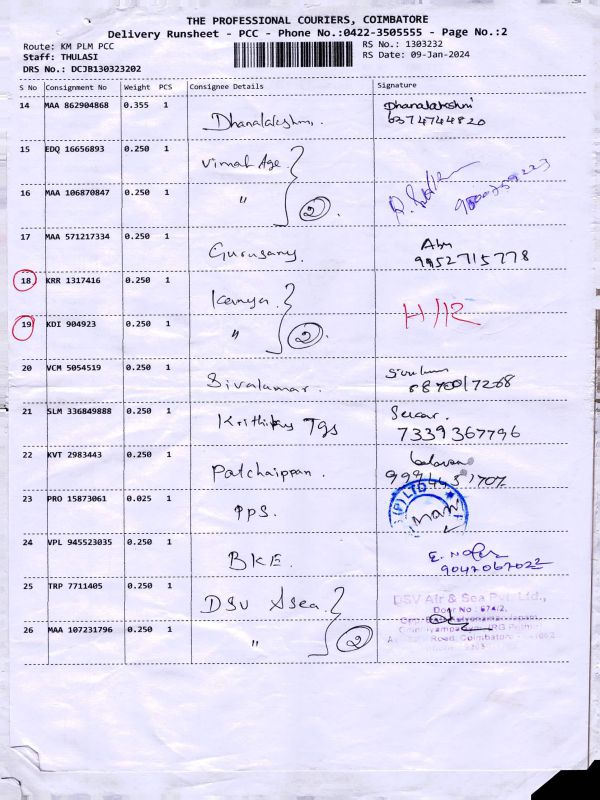 THE PROFESSIONAL COURIERS, COIMBATORE
Delivery Runsheet - PCC - Phone No.:0422-3505555 - Page No.:2
Route: KM PLM PCC
RS No.: 1303232
Staff: THULASI
RS Date: 09-Jan-2024
DRS No.: DCJB130323202
S No Consignment No Weight PCS Consignee Details Signature
14 MAA 862904868 0.355 1 Dhanalakshmi. Dhanalakshmi
6374744820
15 EDQ 16656893 0.250 1 Vimal Age
16 MAA 106870847 0.250 1 " 2
17 MAA 571217334 0.250 1 Gurusamy. Abu
9952715778
18 KRR 1317416 0.250 1 Kavya. H/R
19 KDI 904923 0.250 1 " 2
20 VCM 5054519 0.250 1 Sivakumar.
21 SLM 336849888 0.250 1 Tgs Sekar.
7339367796
22 KVT 2983443 0.250 1 Patchaippan.
23 PRO 15873061 0.025 1 PPS.
(P) LTD
24 VPL 945523035 0.250 1 BKE.
9047067022
25 TRP 7711405 0.250 1 DSV Asea. DSV Air & Sea Pvt. Ltd.,
Door No : 674/2,
26 MAA 107231796 0.250 1 " 2
Road, Coimbatore